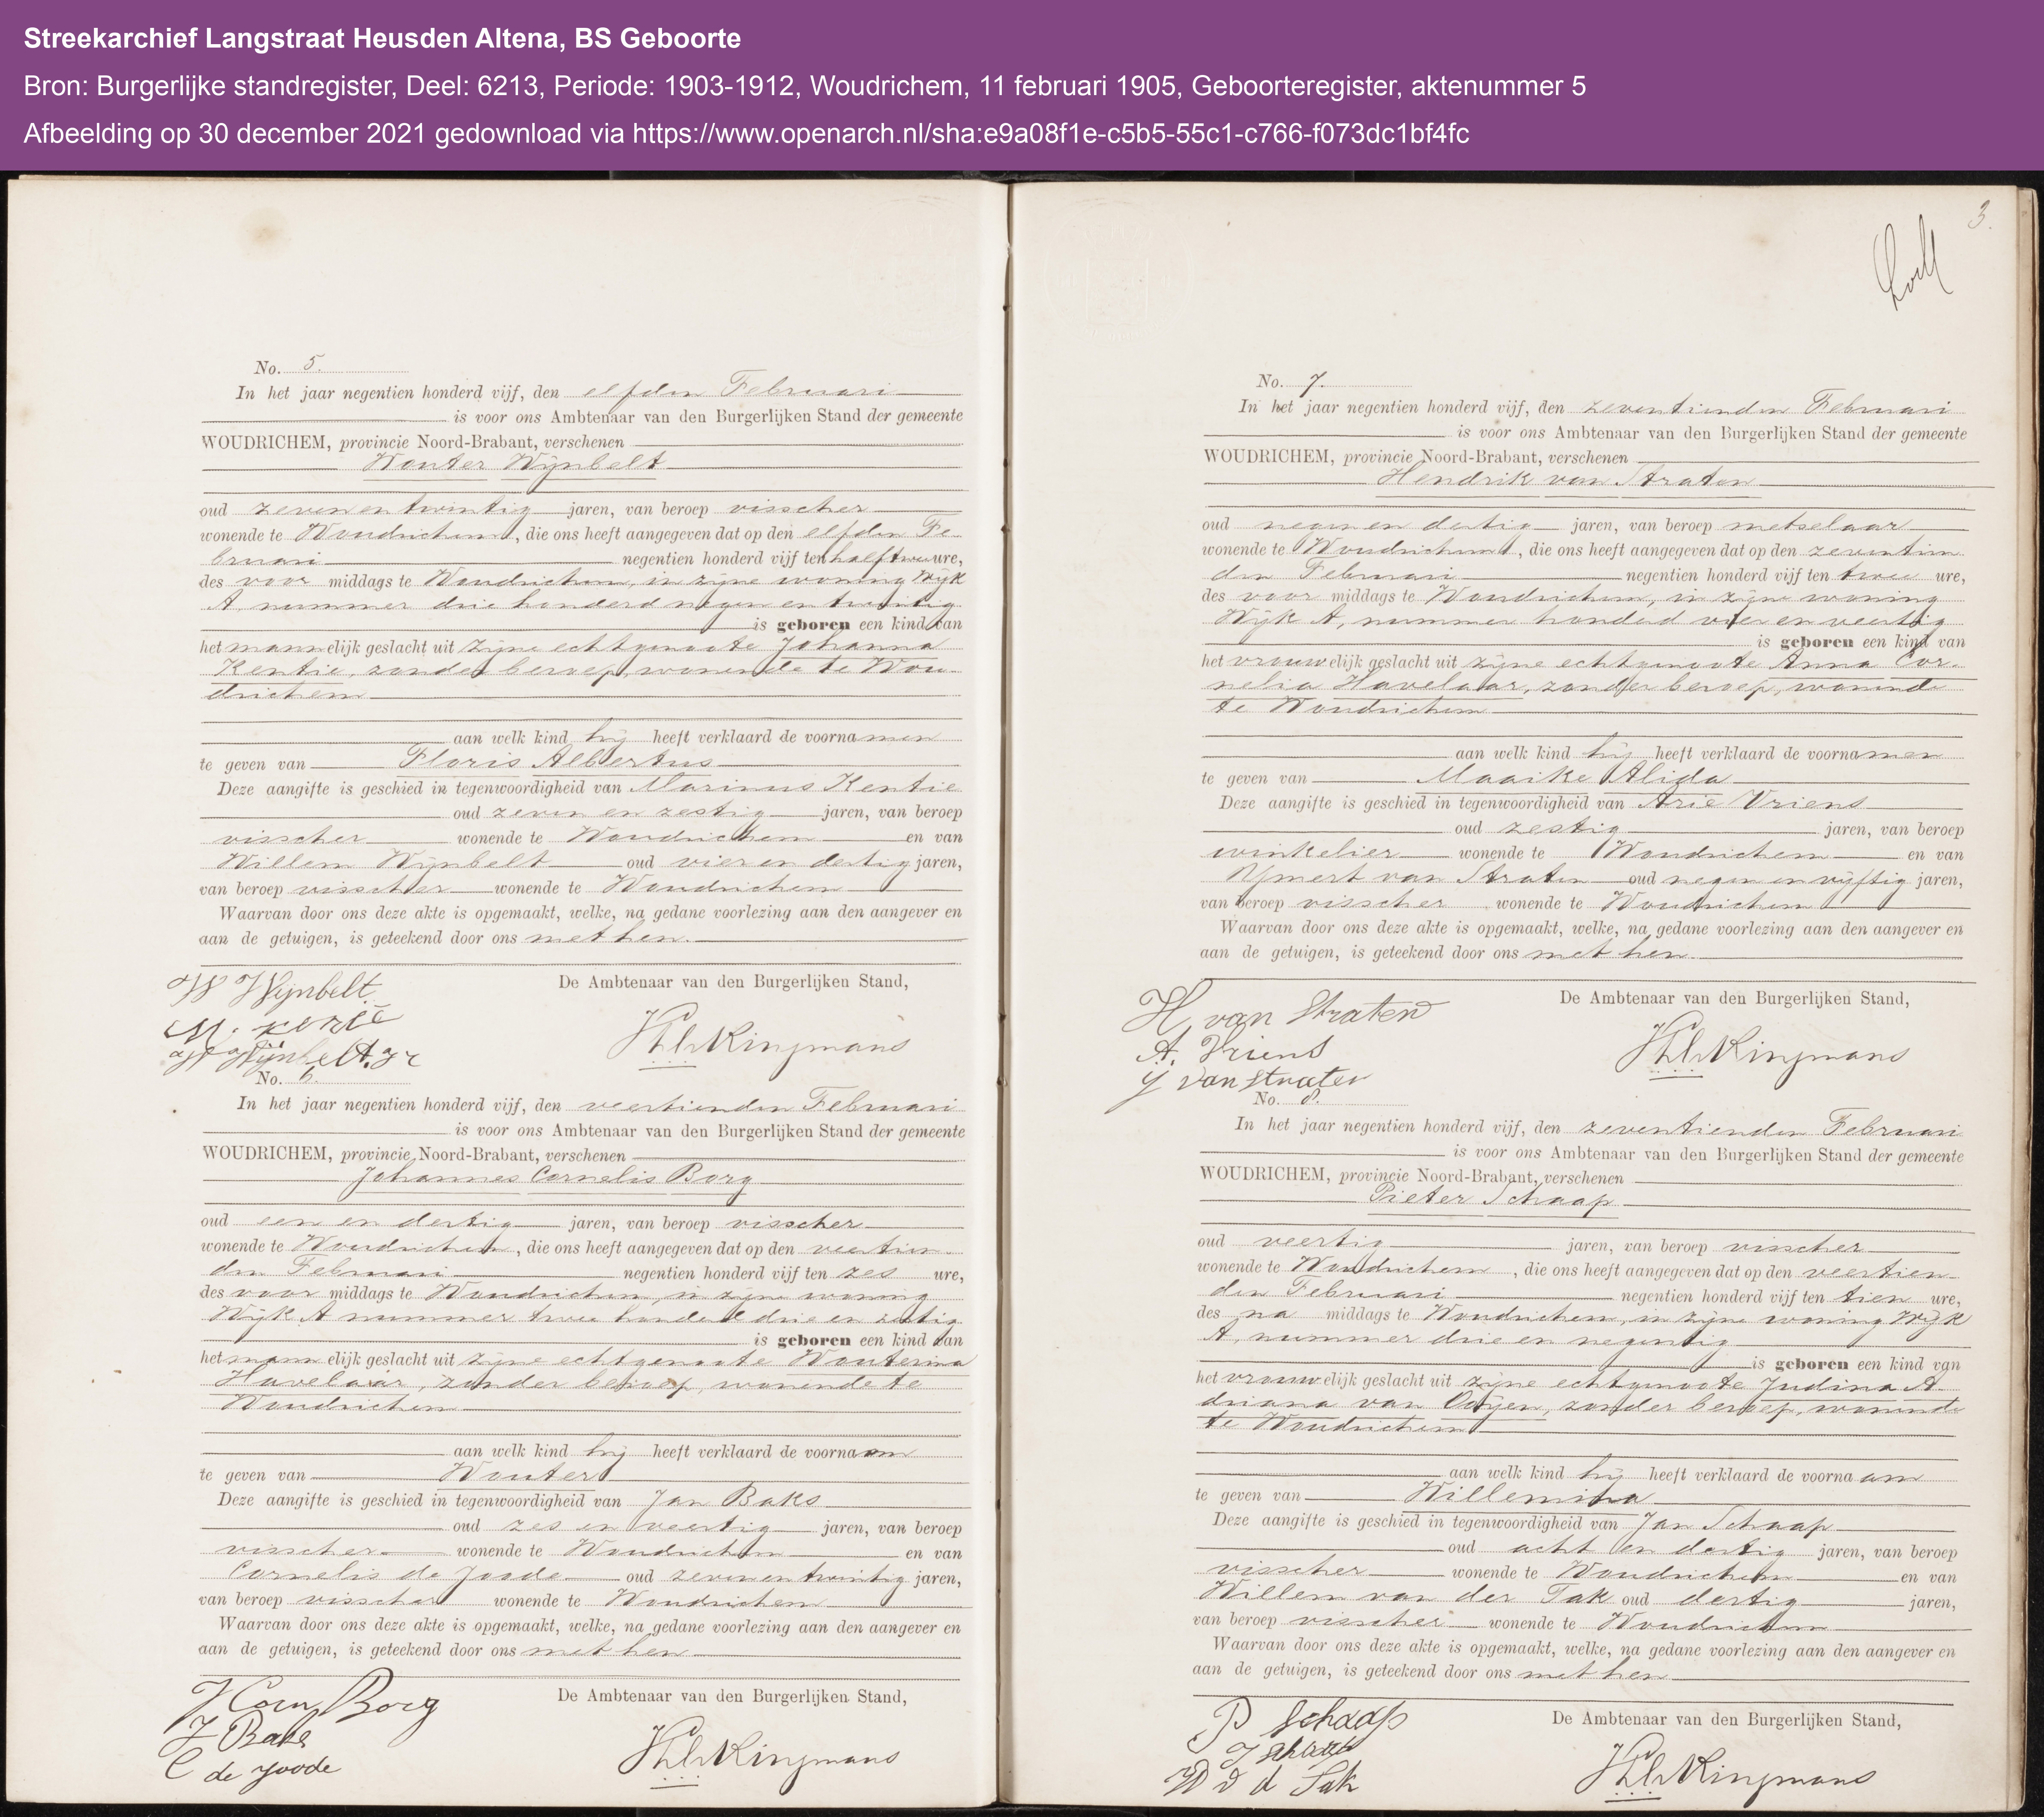 Streekarchief Langstraat Heusden Altena, BS Geboorte
Bron: Burgerlijke standregister, Deel: 6213, Periode: 1903-1912, Woudrichem, 11 februari 1905, Geboorteregister, aktenummer 5
Afbeelding op 30 december 2021 gedownload via https://www.openarch.nl/sha:e9a08f1e-c5b5-55c1-c766-f073dc1bf4fc
No. 5.
In het jaar negentien honderd vijf, den elfden Februari
is voor ons Ambtenaar van den Burgerlijken Stand der gemeente
WOUDRICHEM, provincie Noord-Brabant, verschenen
Wouter Wijnbelt
oud zeven en twintig jaren, van beroep visscher
wonende te Woudrichem, die ons heeft aangegeven dat op den elfden Fe-
bruari negentien honderd vijf ten half twee ure,
des voor middags te Woudrichem, in zijne woning Wijk
A, nummer drie honderd negen en twintig
is geboren een kind van
het mannelijk geslacht uit zijne echtgenoote Johanna
Kentie, zonder beroep, wonende te Wou-
drichem
aan welk kind hij heeft verklaard de voornamen
te geven van Floris Albertus
Deze aangifte is geschied in tegenwoordigheid van Marinus Kentie
oud zeven en zestig jaren, van beroep
visscher wonende te Woudrichem en van
Willem Wijnbelt oud vier en dertig jaren,
van beroep visscher wonende te Woudrichem
Waarvan door ons deze akte is opgemaakt, welke, na gedane voorlezing aan den aangever en
aan de getuigen, is geteekend door ons met hen.
De Ambtenaar van den Burgerlijken Stand,
W Wijnbelt
Kingmans
No. 6.
In het jaar negentien honderd vijf, den veertienden Februari
is voor ons Ambtenaar van den Burgerlijken Stand der gemeente
WOUDRICHEM, provincie Noord-Brabant, verschenen
Johannes Cornelis Borg
oud een en dertig jaren, van beroep visscher
wonende te Woudrichem, die ons heeft aangegeven dat op den veertien-
den Februari negentien honderd vijf ten zes ure,
des voor middags te Woudrichem, in zijne woning
Wijk A nummer twee honderd drie en zestig
is geboren een kind van
het mannelijk geslacht uit zijne echtgenoote Wouterina
Havelaar, zonder beroep, wonende te
Woudrichem
aan welk kind hij heeft verklaard de voornaam
te geven van Wouter
Deze aangifte is geschied in tegenwoordigheid van Jan Baks
oud zes en veertig jaren, van beroep
visscher wonende te Woudrichem en van
Cornelis de Joode oud zeven en twintig jaren,
van beroep visscher wonende te Woudrichem
Waarvan door ons deze akte is opgemaakt, welke, na gedane voorlezing aan den aangever en
aan de getuigen, is geteekend door ons met hen
De Ambtenaar van den Burgerlijken Stand,
J Corn Borg
J Baks
C de Joode
Kingmans
3.
No. 7.
In het jaar negentien honderd vijf, den zeventienden Februari
is voor ons Ambtenaar van den Burgerlijken Stand der gemeente
WOUDRICHEM, provincie Noord-Brabant, verschenen
Hendrik van Straten
oud negen en dertig jaren, van beroep metselaar
wonende te Woudrichem, die ons heeft aangegeven dat op den zeventien-
den Februari negentien honderd vijf ten twee ure,
des voor middags te Woudrichem, in zijne woning
Wijk A, nummer honderd vier en veertig
is geboren een kind van
het vrouwelijk geslacht uit zijne echtgenoote Anna Cor-
nelia Havelaar, zonder beroep, wonende
te Woudrichem
aan welk kind hij heeft verklaard de voornamen
te geven van Maaike Alida
Deze aangifte is geschied in tegenwoordigheid van Arie Vriens
oud zestig jaren, van beroep
winkelier wonende te Woudrichem en van
IJmert van Straten oud negen en vijftig jaren,
van beroep visscher wonende te Woudrichem
Waarvan door ons deze akte is opgemaakt, welke, na gedane voorlezing aan den aangever en
aan de getuigen, is geteekend door ons met hen.
De Ambtenaar van den Burgerlijken Stand,
H van Straten
A. Vriens
IJ van Straten
Kingmans
No. 8.
In het jaar negentien honderd vijf, den zeventienden Februari
is voor ons Ambtenaar van den Burgerlijken Stand der gemeente
WOUDRICHEM, provincie Noord-Brabant, verschenen
Pieter Schaap
oud veertig jaren, van beroep visscher
wonende te Woudrichem, die ons heeft aangegeven dat op den veertien-
den Februari negentien honderd vijf ten tien ure,
des na middags te Woudrichem, in zijne woning Wijk
A, nummer drie en negentig
is geboren een kind van
het vrouwelijk geslacht uit zijne echtgenoote Judina A-
driana van Ooijen, zonder beroep, wonende
te Woudrichem
aan welk kind hij heeft verklaard de voornaam
te geven van Willemina
Deze aangifte is geschied in tegenwoordigheid van Jan Schaap
oud acht en dertig jaren, van beroep
visscher wonende te Woudrichem en van
Willem van der Tak oud dertig jaren,
van beroep visscher wonende te Woudrichem
Waarvan door ons deze akte is opgemaakt, welke, na gedane voorlezing aan den aangever en
aan de getuigen, is geteekend door ons met hen
De Ambtenaar van den Burgerlijken Stand,
P Schaap
J Schaap
W v d Tak
Kingmans